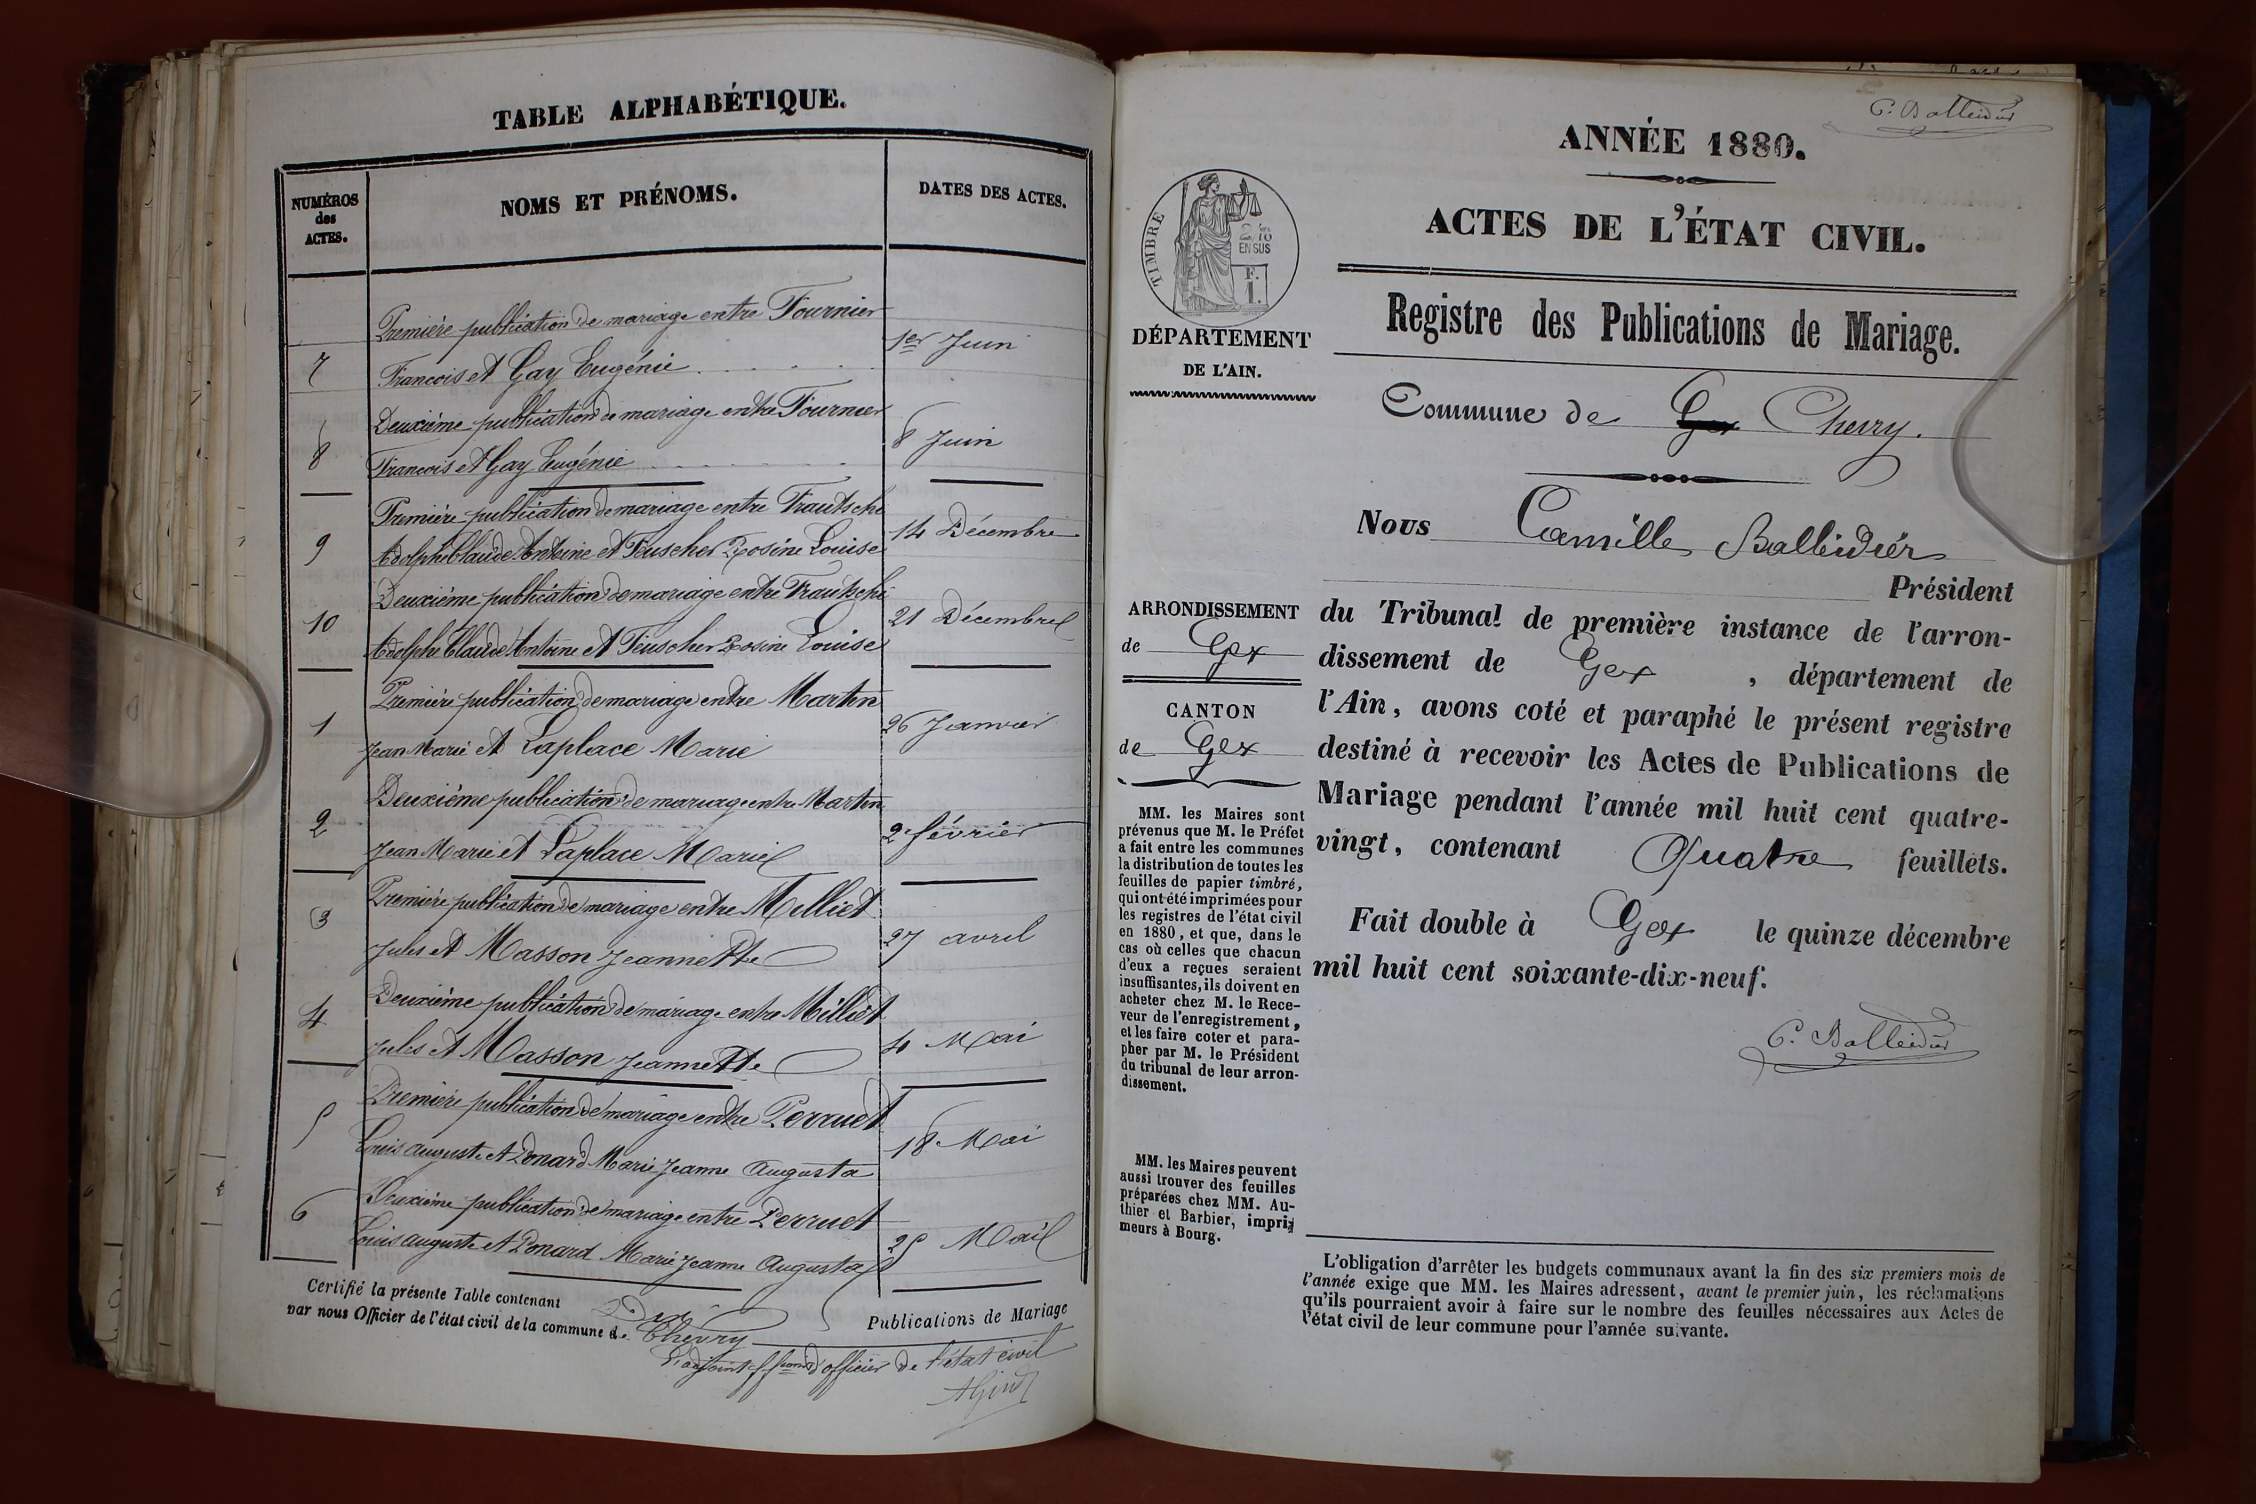 TABLE ALPHABÉTIQUE.
NUMÉROS
des
ACTES.
NOMS ET PRÉNOMS.
DATES DES ACTES.
Première publication de mariage entre Fournier
7 François et Gay Eugénie 1er Juin
Deuxième publication de mariage entre Fournier
8 François et Gay Eugénie 8 Juin
Première publication de mariage entre Trautschi
9 Adolphe Claude Antoine et Teuscher Rosine Louise 14 Décembre
Deuxième publication de mariage entre Trautschi
10 Adolphe Claude Antoine et Teuscher Rosine Louise 21 Décembre
Première publication de mariage entre Martin
1 Jean Marie et Laplace Marie 26 Janvier
Deuxième publication de mariage entre Martin
2 Jean Marie et Laplace Marie 2 février
Première publication de mariage entre Milliet
3 Jules et Masson Jeannette 27 avril
Deuxième publication de mariage entre Milliet
4 Jules et Masson Jeannette 4 Mai
Première publication de mariage entre Perruet
5 Louis auguste et Ponard Marie Jeanne Augusta 18 Mai
Deuxième publication de mariage entre Perruet
6 Louis auguste et Ponard Marie Jeanne Augusta 25 Mai
Certifié la présente Table contenant Dix Publications de Mariage
par nous Officier de l'état civil de la commune de Chevry
L'adjoint ff d'officier de l'état civil
C. Balleidier
ANNÉE 1880.
ACTES DE L'ÉTAT CIVIL.
TIMBRE
2/10
EN SUS
F.
I.
DÉPARTEMENT
DE L'AIN.
Registre des Publications de Mariage.
Commune de Gex Chevry.
Nous Camille Balleidier
Président
du Tribunal de première instance de l'arron-
dissement de Gex, département de
l'Ain, avons coté et paraphé le présent registre
destiné à recevoir les Actes de Publications de
Mariage pendant l'année mil huit cent quatre-
vingt, contenant Quatre feuillets.
Fait double à Gex le quinze décembre
mil huit cent soixante-dix-neuf.
C. Balleidier
ARRONDISSEMENT
de Gex
CANTON
de Gex
MM. les Maires sont
prévenus que M. le Préfet
a fait entre les communes
la distribution de toutes les
feuilles de papier timbré,
qui ont été imprimées pour
les registres de l'état civil
en 1880, et que, dans le
cas où celles que chacun
d'eux a reçues seraient
insuffisantes, ils doivent en
acheter chez M. le Rece-
veur de l'enregistrement,
et les faire coter et para-
pher par M. le Président
du tribunal de leur arron-
dissement.
MM. les Maires peuvent
aussi trouver des feuilles
préparées chez MM. Au-
thier et Barbier, impri-
meurs à Bourg.
L'obligation d'arrêter les budgets communaux avant la fin des six premiers mois de
l'année exige que MM. les Maires adressent, avant le premier juin, les réclamations
qu'ils pourraient avoir à faire sur le nombre des feuilles nécessaires aux Actes de
l'état civil de leur commune pour l'année suivante.